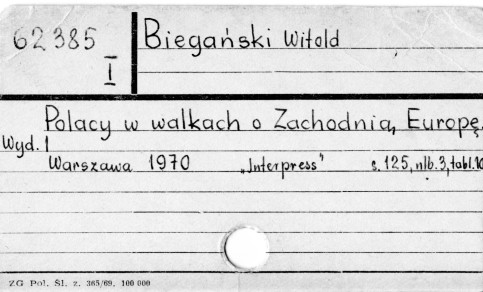 62385 Biegański Witold
I
Polacy w walkach o Zachodnią Europę.
Wyd. 1
Warszawa 1970 „Interpress" s. 125, nlb. 3, tabl. 10
ZG Pol. Śl. z. 365/69, 100 000